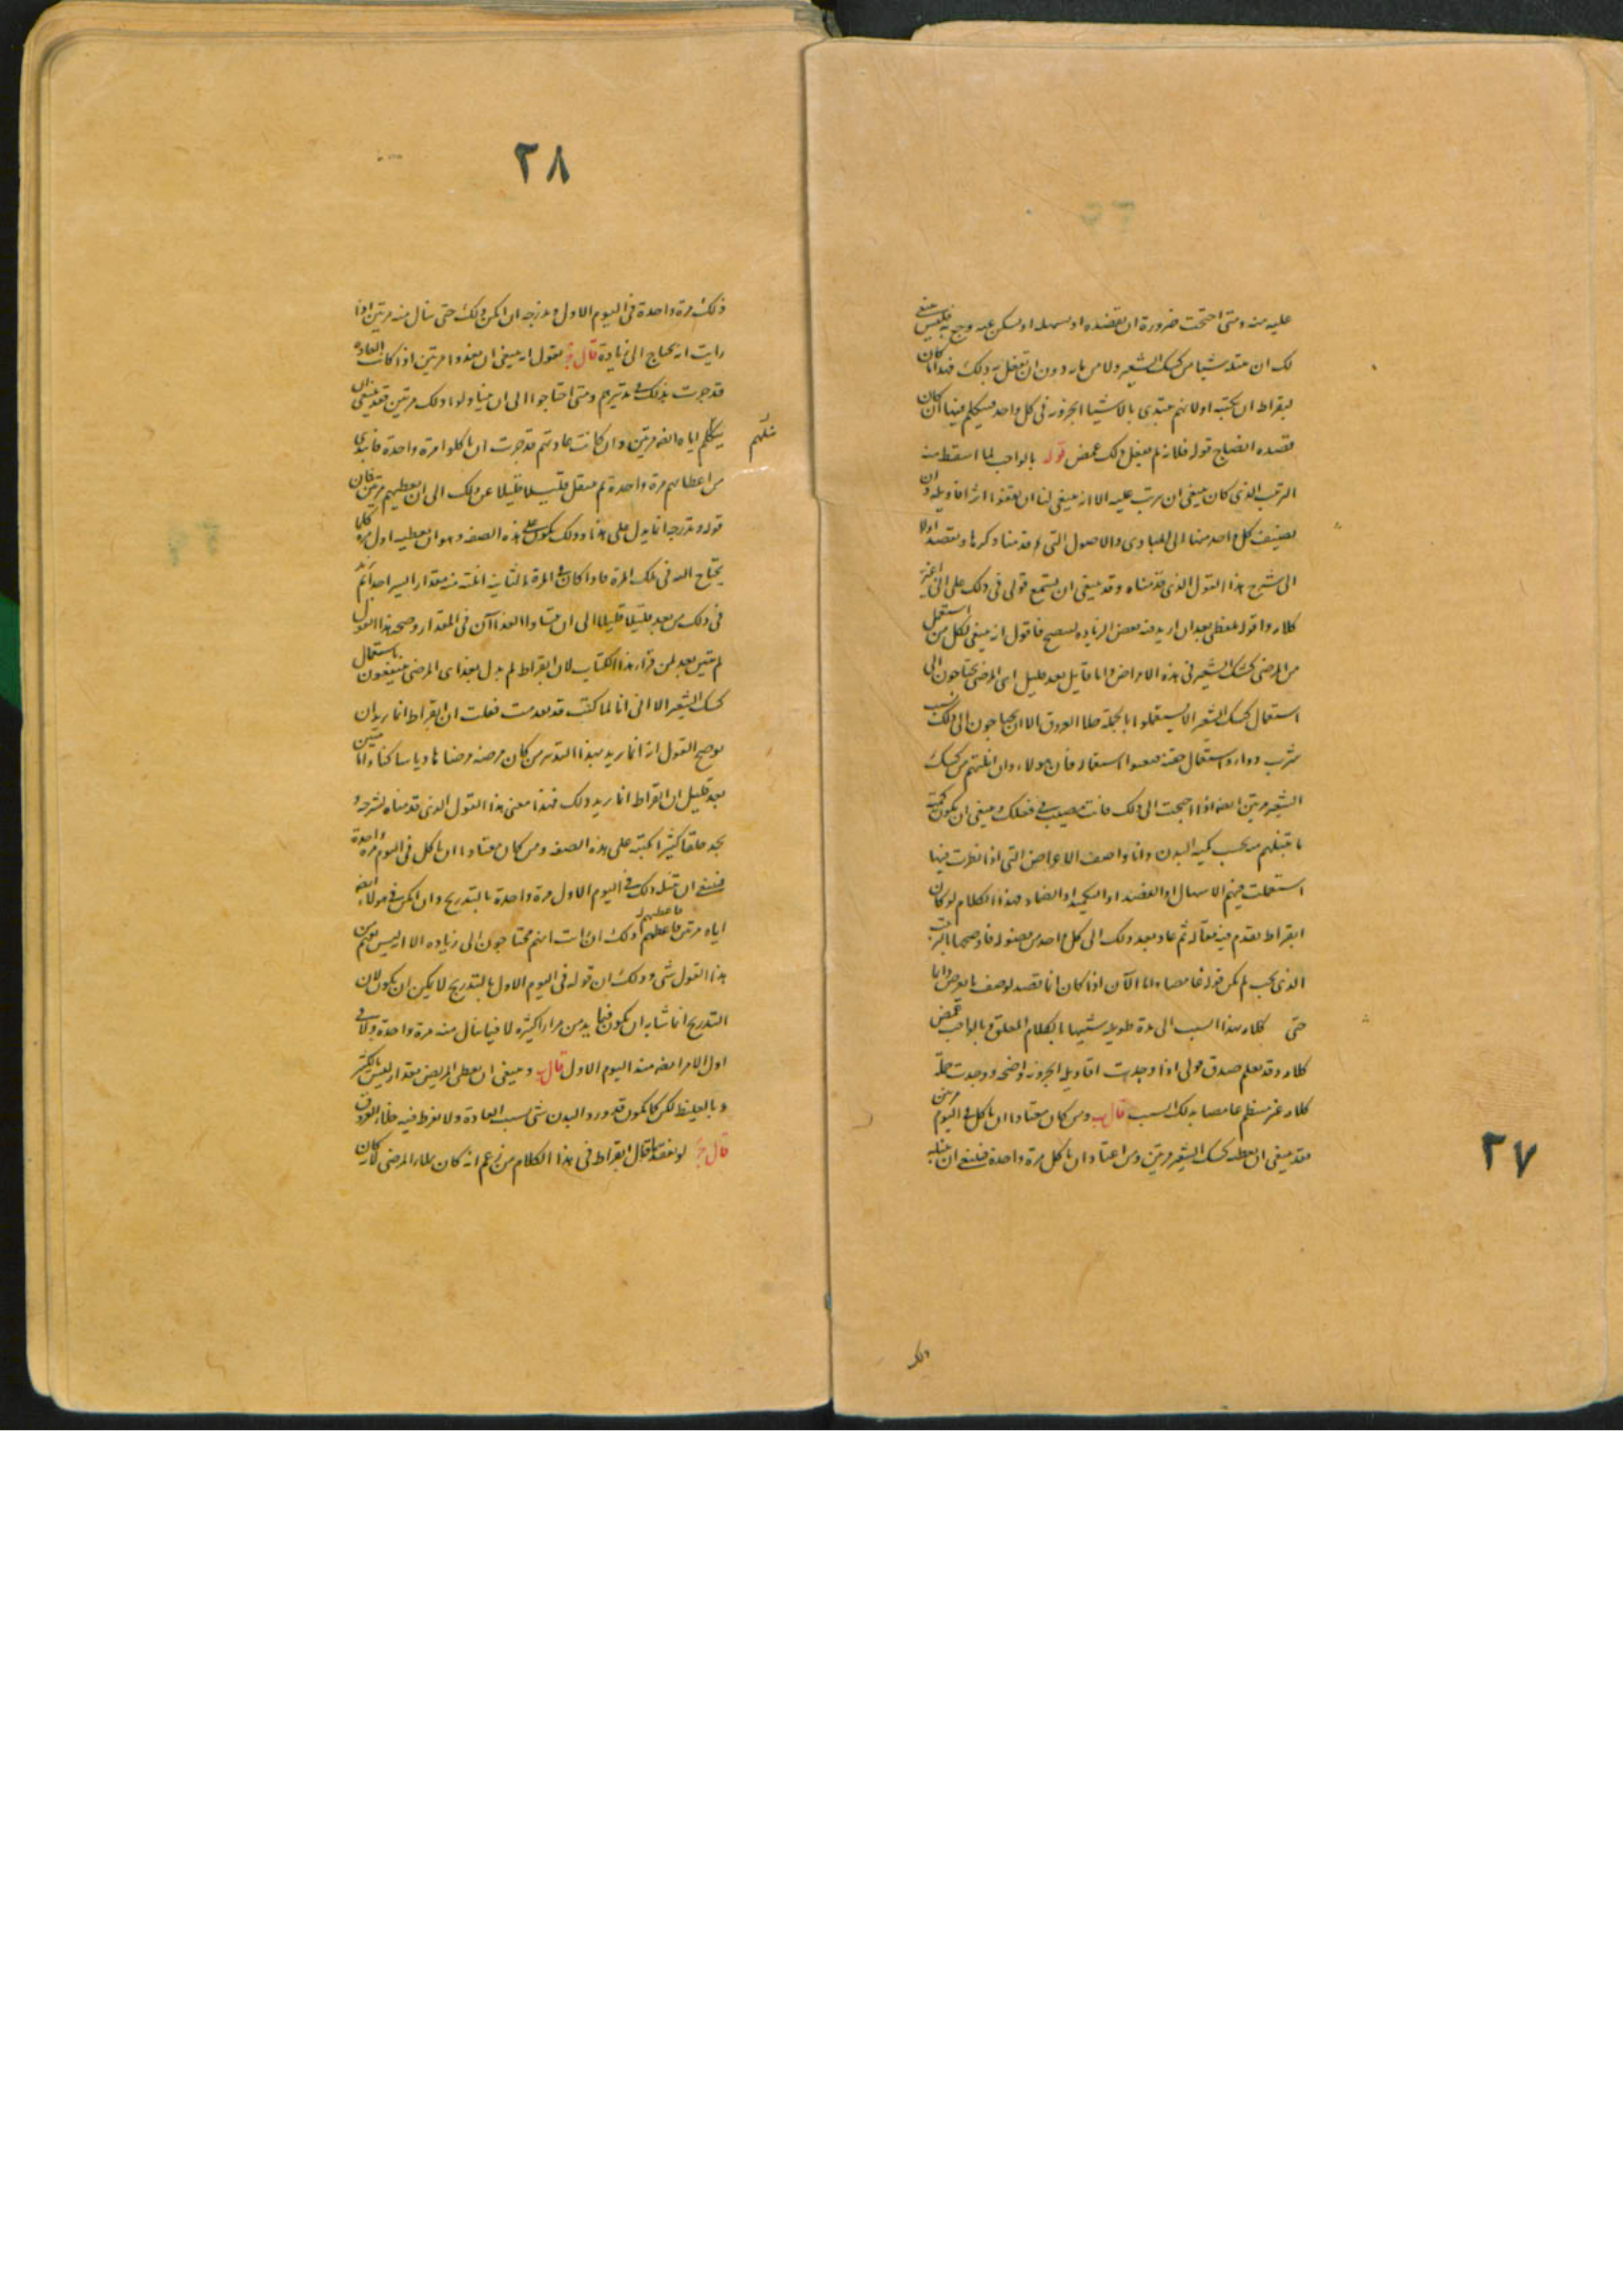 عليه منه ومتى احتجت ضرورة ان تفصده او تسهله او تسكن عنه وجع به فليس ينبغي
لك ان تنيله شيئا من كشك الشعير ولا من مائه دون ان تفعل به ذلك فهذا ما كان
لبقراط ان يكتبه اولا ثم يبتدئ بالاشياء الجزوية في كل واحد فيتكلم فيها ان كان
قصده ايضاح قوله فلانه لم يفعل ذلك غمض قوله بالواجب لما اسقط منه
الترتيب الذي كان ينبغي ان يرتب عليه الا انه ينبغي لنا ان يقفوا اثر اقاويله وان
نضيف كل واحد منها الى المبادي والاصول التي قدمنا ذكرها ونقصد اولا
الى شرح هذا القول الذي قدمناه وقد ينبغي ان تستمع قولي في ذلك على اني اغير
كلامه واقوله بلفظي بعد ان ازيد فيه بعض الزيادة ليصح فاقول انه ينبغي لكل من استعمل
من المرضى كشك الشعير في هذه الامراض وانا قايل بعد قليل اي المرضى يحتاجون الى
استعمال كشك الشعير الا يستعملوا بالجملة خلاء العروق الا ان يحتاجون الى ذلك بسبب
شرب دواء واستعمال حقنة فيعسر استعماله فان هولاء وان انلتهم من كشك
الشعير مرتين ايضا اذا احتجت الى ذلك فانت مصيب في فعلك وينبغي ان يكون كمية
ما تنيلهم منه بحسب كمية البدن وانا واصف الاعراض التي اذا نظرت فيها
استعملت فيهم الاسهال او الفصد او التكميد او الضماد فهذا الكلام لو كان
ابقراط تقدم فيه فقاله ثم عاد بعد ذلك الى كل واحد من فصوله فاوضحها بالترتيب
الذي يجب لم يكن قوله غامضا واما الآن اذا كان انما قصد لوصف ما يعرض دايما
حتى كلامه بهذا السبب الى مدة طويلة شبيها بالكلام المغلق فبالواجب غمض
كلامه وقد تعلم صدق قولي اذا وجدت اقاويله الجزوية واضحة ووجدت جملة
كلامه غير منتظم غامضا بذلك السبب قال ب ومن كان معتادا ان ياكل في اليوم مرتين
فقد ينبغي ان يعطيه كشك الشعير مرتين ومن اعتاد ان ياكل مرة واحدة فينبغي ان تنيله
٢٧
ذلك
٢٨
ذلك مرة واحدة في اليوم الاول وتدرجه ان امكن ذلك حتى ينال منه مرتين اذا
رايت انه يحتاج الى زيادة قال ج يقول انه ينبغي ان يغذوا مرتين اذا كانت العادة
قد جرت بذلك في تدبيرهم ومتى احتاجوا الى ان يتناولوا ذلك مرتين فقد ينبغي ان
ينيلهم اياه ايضا مرتين وان كانت عادتهم قد جرت ان ياكلوا مرة واحدة فابتدئ
ينيلهم
من اعطائهم مرة واحدة ثم ينقل قليلا قليلا عن ذلك الى ان يعطيهم مرتين فان
قوله وتدرجه انما يدل على هذا وذلك يكون على هذه الصفة وهو ان تعطيه اول مرة كلما
يحتاج اليه في تلك المرة فاذا كان في المرة الثانية انلته منه مقدار اليسير جدا ثم زد
في ذلك من بعد قليلا قليلا الى ان يتساوا الغذاآن في المقدار وصحة هذا القول
لم يتبين بعد لمن قراء هذا الكتاب لان ابقراط لم يدل بعد اي المرضى ينتفعون باستعمال
كشك الشعير الا انني انا لما كنت قد تقدمت فقلت ان ابقراط انما يريد ان
يوضح القول انه انما يريد بهذا التدبير من كان مرضه مرضا حادا يابسا كذا وانا مبين
بعد قليل ان ابقراط انما يريد ذلك فهذا معنى هذا القول الذي قدمناه بشرحه و
نجد خلقا كثيرا كتبه على هذه الصفة ومن كان معتادا ان ياكل في اليوم مرة واحدة
فينبغي ان تنيله ذلك في اليوم الاول مرة واحدة بالتدريج وان امكن في هولاء ايضا
اياه مرتين فاعطهم ذلك ان رايت انهم محتاجون الى زيادة الا انه ليس يفهم من
فاعطهم
هذا القول شي وذلك ان قوله في اليوم الاول بالتدريج لا يمكن ان يكون لان
التدريج انما شانه ان يكون فيما يدمن مرارا كثيرة لا فيما ينال منه مرة واحدة ولا في
اول الامر ايضا منذ اليوم الاول قال ب وينبغي ان يعطى المريض مقدار ليس بالكثير
وبالغليظ لكن كما يكون قد ورد البدن شي بسبب العادة ولا يفرط فيه خلاء العروق
قال ج لو انفضنا قال ابقراط في هذا الكلام من زعم انه كان يملاء المرضى لكان